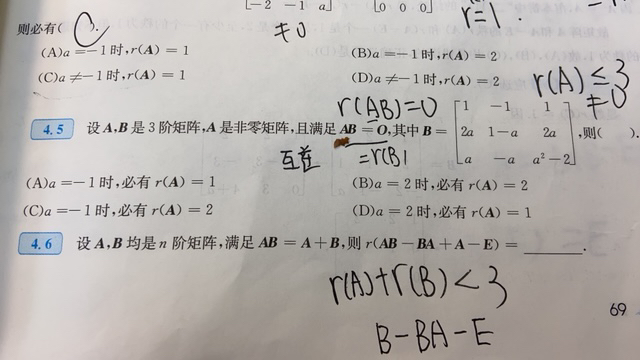 -2 -1 a 0 0 0 r=1.
则必有( C ). ≠0
(A)a=-1时,r(A)=1 (B)a=-1时,r(A)=2
(C)a≠-1时,r(A)=1 (D)a≠-1时,r(A)=2
r(A)≤3
≠0
r(AB)=0
4.5 设A,B是3阶矩阵,A是非零矩阵,且满足AB=O,其中B=[1 -1 1; 2a 1-a 2a; a -a a²-2],则( ).
互逆 =r(B)
(A)a=-1时,必有r(A)=1 (B)a=2时,必有r(A)=2
(C)a=-1时,必有r(A)=2 (D)a=2时,必有r(A)=1
4.6 设A,B均是n阶矩阵,满足AB=A+B,则r(AB-BA+A-E)=________.
r(A)+r(B)<3
B-BA-E
69